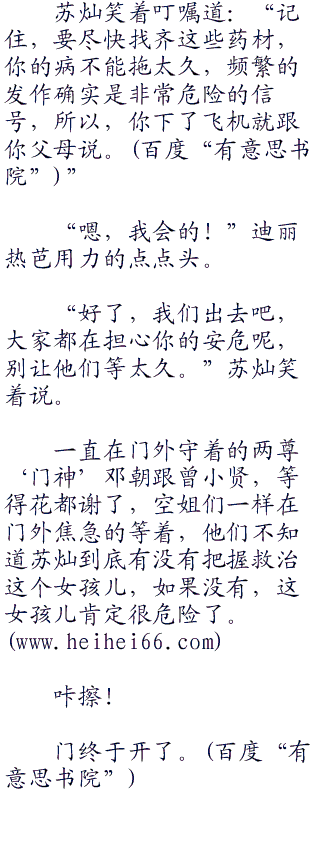 苏灿笑着叮嘱道：“记
住，要尽快找齐这些药材，
你的病不能拖太久，频繁的
发作确实是非常危险的信
号，所以，你下了飞机就跟
你父母说。(百度“有意思书
院”)”
“嗯，我会的！”迪丽
热芭用力的点点头。
“好了，我们出去吧，
大家都在担心你的安危呢，
别让他们等太久。”苏灿笑
着说。
一直在门外守着的两尊
‘门神’邓朝跟曾小贤，等
得花都谢了，空姐们一样在
门外焦急的等着，他们不知
道苏灿到底有没有把握救治
这个女孩儿，如果没有，这
女孩儿肯定很危险了。
(www.heihei66.com)
咔擦！
门终于开了。(百度“有
意思书院”)